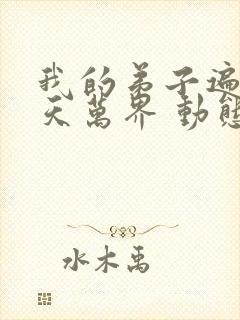 我的弟子遍
天萬界 動態
水木禹